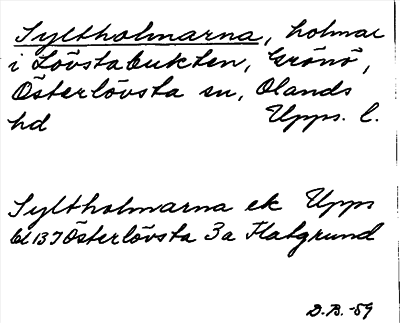 Syltholmarna, holmar
i Lövstabukten, Grönö,
Österlövsta sn, Olands
hd Upps. l.
Syltholmarna ek Upps
bl 13 I Österlövsta 3a Flatgrund
D.B. -59